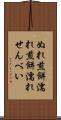 ぬれ煎餅濡
れ煎餅濡れ
せんべい